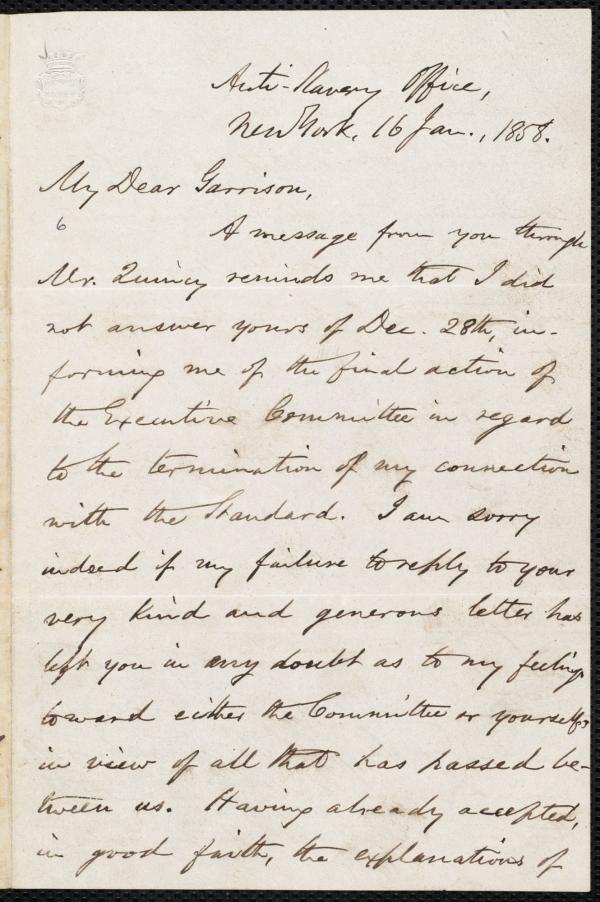 Anti-Slavery Office,
New York, 16 Jan., 1858.
My Dear Garrison,
6
A message from you through
Mr. Quincy reminds me that I did
not answer yours of Dec. 28th, in-
forming me of the final action of
the Executive Committee in regard
to the termination of my connection
with the Standard. I am sorry
indeed if my failure to reply to your
very kind and generous letter has
left you in any doubt as to my feelings
toward either the Committee or yourself,
in view of all that has passed be-
tween us. Having already accepted,
in good faith, the explanations of